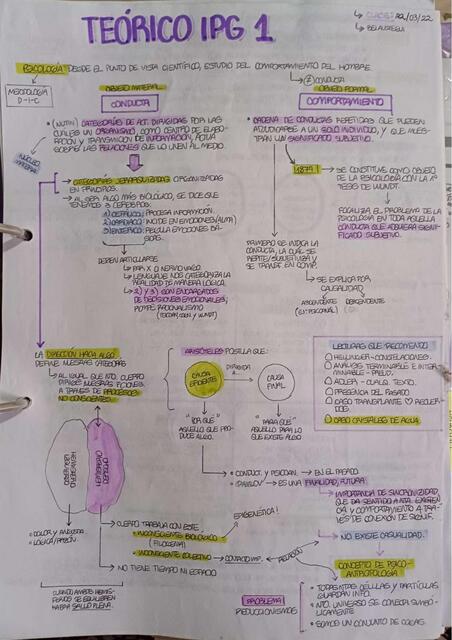 TEÓRICO IPG 1
CLASES 22/03/22
PSICOLOGÍA: DESDE EL PUNTO DE VISTA CIENTÍFICO, ESTUDIO DEL COMPORTAMIENTO DEL HOMBRE.
CONDUCTA
METODOLOGÍA
D-I-C
OBJETO MATERIAL
OBJETO FORMAL
CONDUCTA
COMPORTAMIENTO
CATEGORÍAS DE ACT. DIRIGIDAS POR LAS
CUALES UN ORGANISMO, COMO CENTRO DE ELABO-
RACIÓN Y TRANSMISIÓN DE INFORMACIÓN, ACTÚA
SOBRE LAS RELACIONES QUE LO UNEN AL MEDIO.
CADENA DE CONDUCTAS REPETIDAS QUE PUEDEN
ATRIBUIRSE A UN SOLO INDIVIDUO, Y QUE MUES-
TRAN UN SIGNIFICADO SUBJETIVO.
NÚCLEO
CATEGORÍAS JERARQUIZADAS ORGANIZADAS
EN PRINCIPIOS.
AL SER ALGO MÁS BIOLÓGICO, SE DICE QUE
TENEMOS 3 CEREBROS:
1) CEFÁLICO: PROCESA INFORMACIÓN
2) CARDÍACO: INCIDE EN EMOCIONES (ALMA)
3) ENTÉRICO: REGULA EMOCIONES BÁ-
SICAS.
1879
SE CONSTITUYE COMO OBJETO
DE LA PSICOLOGÍA CON LA 1ª
TESIS DE WUNDT.
FOCALIZA EL PROBLEMA DE LA
PSICOLOGÍA EN TODA AQUELLA
CONDUCTA QUE ADQUIERA SIGNI-
FICADO SUBJETIVO.
DEBEN ARTICULARSE
PAR X O NERVIO VAGO
LENGUAJE NOS CATEGORIZA LA
REALIDAD DE MANERA LÓGICA.
2) Y 3) SON ENCARGADOS
DE DECISIONES EMOCIONALES;
ROMPE RACIONALISMO
PRIMERO SE INDICA LA
CONDUCTA, LA CUÁL SE
REPITE/SUBJETIVIZA Y
SE TRANSF. EN COMP.
SE EXPLICA POR
CAUSALIDAD
ASCENDENTE
DESCENDENTE
LA DIRECCIÓN HACIA ALGO
DEFINE NUESTRAS CATEGORÍAS
AL IGUAL QUE NTO. CUERPO
DIRIGE NUESTRAS ACCIONES
A TRAVÉS DE PROCESOS
NO CONSCIENTES.
ARISTÓTELES POSTULA QUE:
CAUSA
EFICIENTE
DIRIGIDA
A...
CAUSA
FINAL
"POR QUÉ"
AQUELLO QUE PRO-
DUCE ALGO.
"PARA QUÉ"
AQUELLO PARA LO
QUE EXISTE ALGO
LECTURAS QUE RECOMIENDO
HELLINGER - CONSTELACIONES.
ANÁLISIS TERMINABLE E INTER-
MINABLE - FREUD.
ADLER - CUALQ. TEXTO.
PRESENCIA DEL PASADO.
CASO TRANSPLANTE ♡ RECUER-
DOS.
CASO CRISTALES DE AGUA.
HEMISFERIO
IZQUIERDO
HEMISFERIO
DERECHO
CONDUCT. Y PSICOAN. → EN EL PASADO.
PAVLOV → ES UNA FINALIDAD, FUTURA.
IMPORTANCIA DE SINCRONICIDAD,
QUE DA SENTIDO A NTA. EXISTEN-
CIA Y COMPORTAMIENTO A TRA-
VÉS DE CONEXIÓN DE SIGNIF.
NO EXISTE CASUALIDAD.
CONCEPTO DE PSICO-
ANTROPOLOGÍA
LÓGICA/RAZÓN
CUERPO TRABAJA CON ESTE
INCONSCIENTE BIOLÓGICO
(FILOGENIA)
INCONSCIENTE COLECTIVO
EPIGENÉTICA!
RELACIÓN
NO TIENE TIEMPO NI ESTADO
CUANDO AMBOS HEMIS-
FERIOS SE EQUILIBREN
HABRÁ SALUD PLENA.
PROBLEMA
REDUCCIONISMOS
TODAS NTAS CÉLULAS Y PARTÍCULAS
GUARDAN INFO.
NTO. UNIVERSO SE CONECTA SIMBÓ-
LICAMENTE
SOMOS UN CONJUNTO DE COSAS.